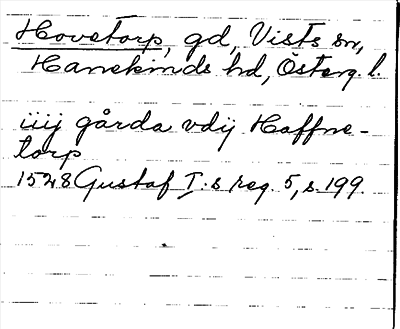 Hovetorp, gd, Vists sn,
Hanekinds hd, Österg. l.
iiij gårda vdij Haffne-
torp
1528 Gustaf I.s reg. 5, s. 199.